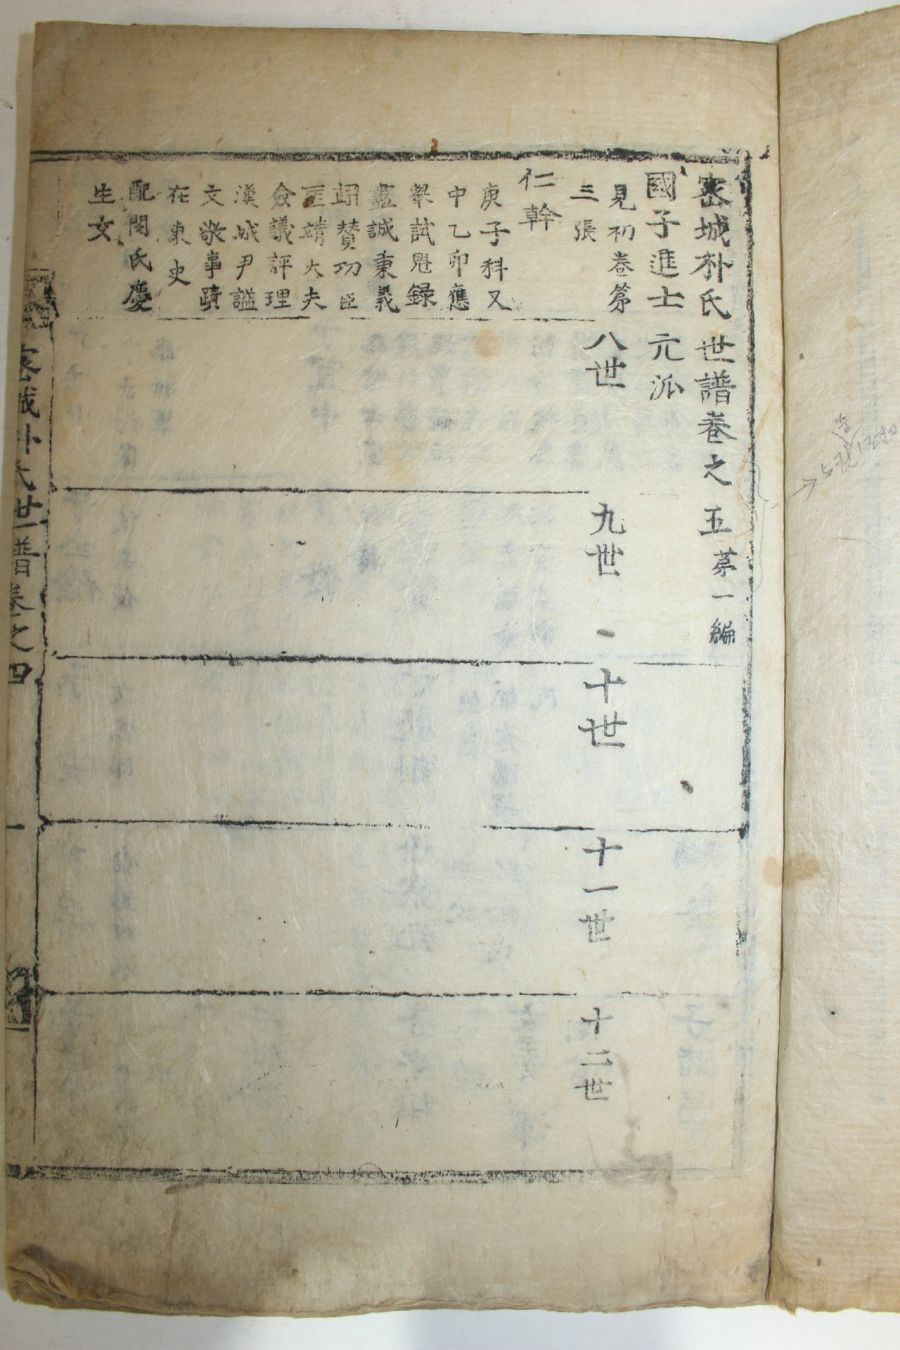 密城朴氏世譜卷之五 苐一編
國子進士元派
見初卷苐
三張
八世
九世
十世
十一世
十二世
仁幹
庚子科又
中乙卯應
舉試魁録
盡誠秉義
翊賛功臣
匡靖大夫
僉議評理
漢城尹諡
文敬事蹟
在東史
配閔氏慶
生女
密城朴氏世譜卷之四
一